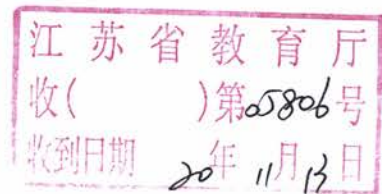 江苏省教育厅
收( )第05806号
收到日期 20年11月13日